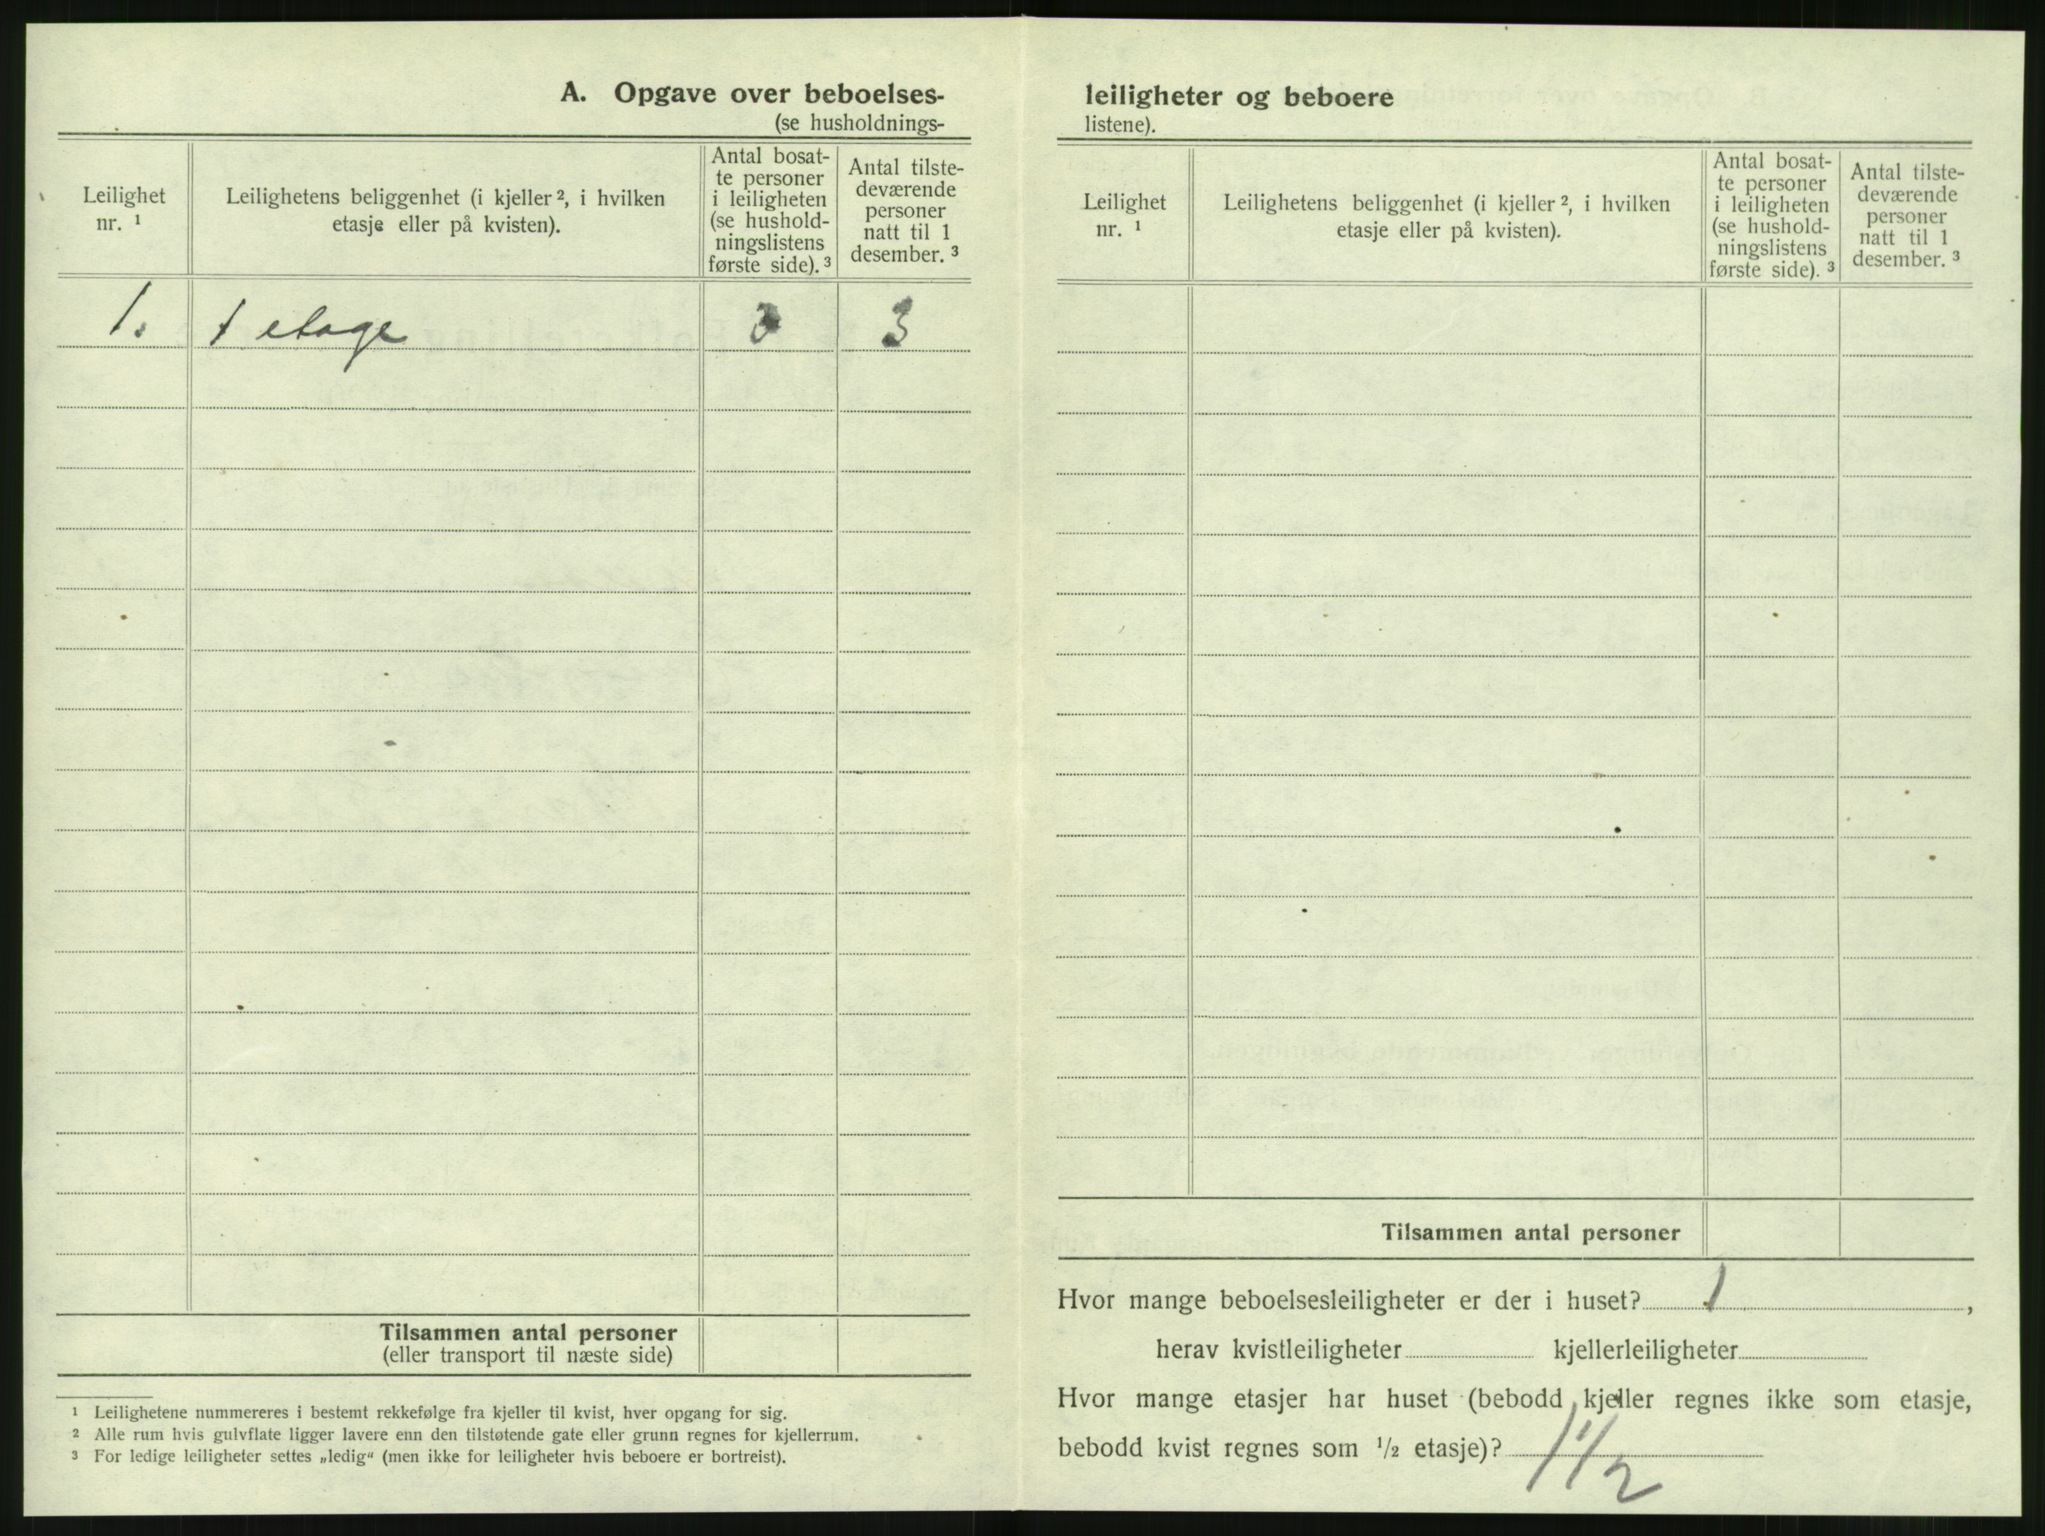 A. Opgave over beboelses-
(se husholdnings-
Leilighet nr. ¹
Leilighetens beliggenhet (i kjeller ², i hvilken etasje eller på kvisten).
Antal bosat-
te personer
i leiligheten
(se hushold-
ningslistens
første side). ³
Antal tilste-
deværende
personer
natt til 1
desember. ³
1. 1 etage 3
Tilsammen antal personer
(eller transport til næste side)
¹ Leilighetene nummereres i bestemt rekkefølge fra kjeller til kvist, hver opgang for sig.
² Alle rum hvis gulvflate ligger lavere enn den tilstøtende gate eller grunn regnes for kjellerrum.
³ For ledige leiligheter settes „ledig“ (men ikke for leiligheter hvis beboere er bortreist).
leiligheter og beboere
listene).
Leilighet nr. ¹
Leilighetens beliggenhet (i kjeller ², i hvilken etasje eller på kvisten).
Antal bosat-
te personer
i leiligheten
(se hushold-
ningslistens
første side). ³
Antal tilste-
deværende
personer
natt til 1
desember. ³
Tilsammen antal personer
Hvor mange beboelsesleiligheter er der i huset? 1,
herav kvistleiligheter kjellerleiligheter
Hvor mange etasjer har huset (bebodd kjeller regnes ikke som etasje,
bebodd kvist regnes som ½ etasje)? 1 1/2